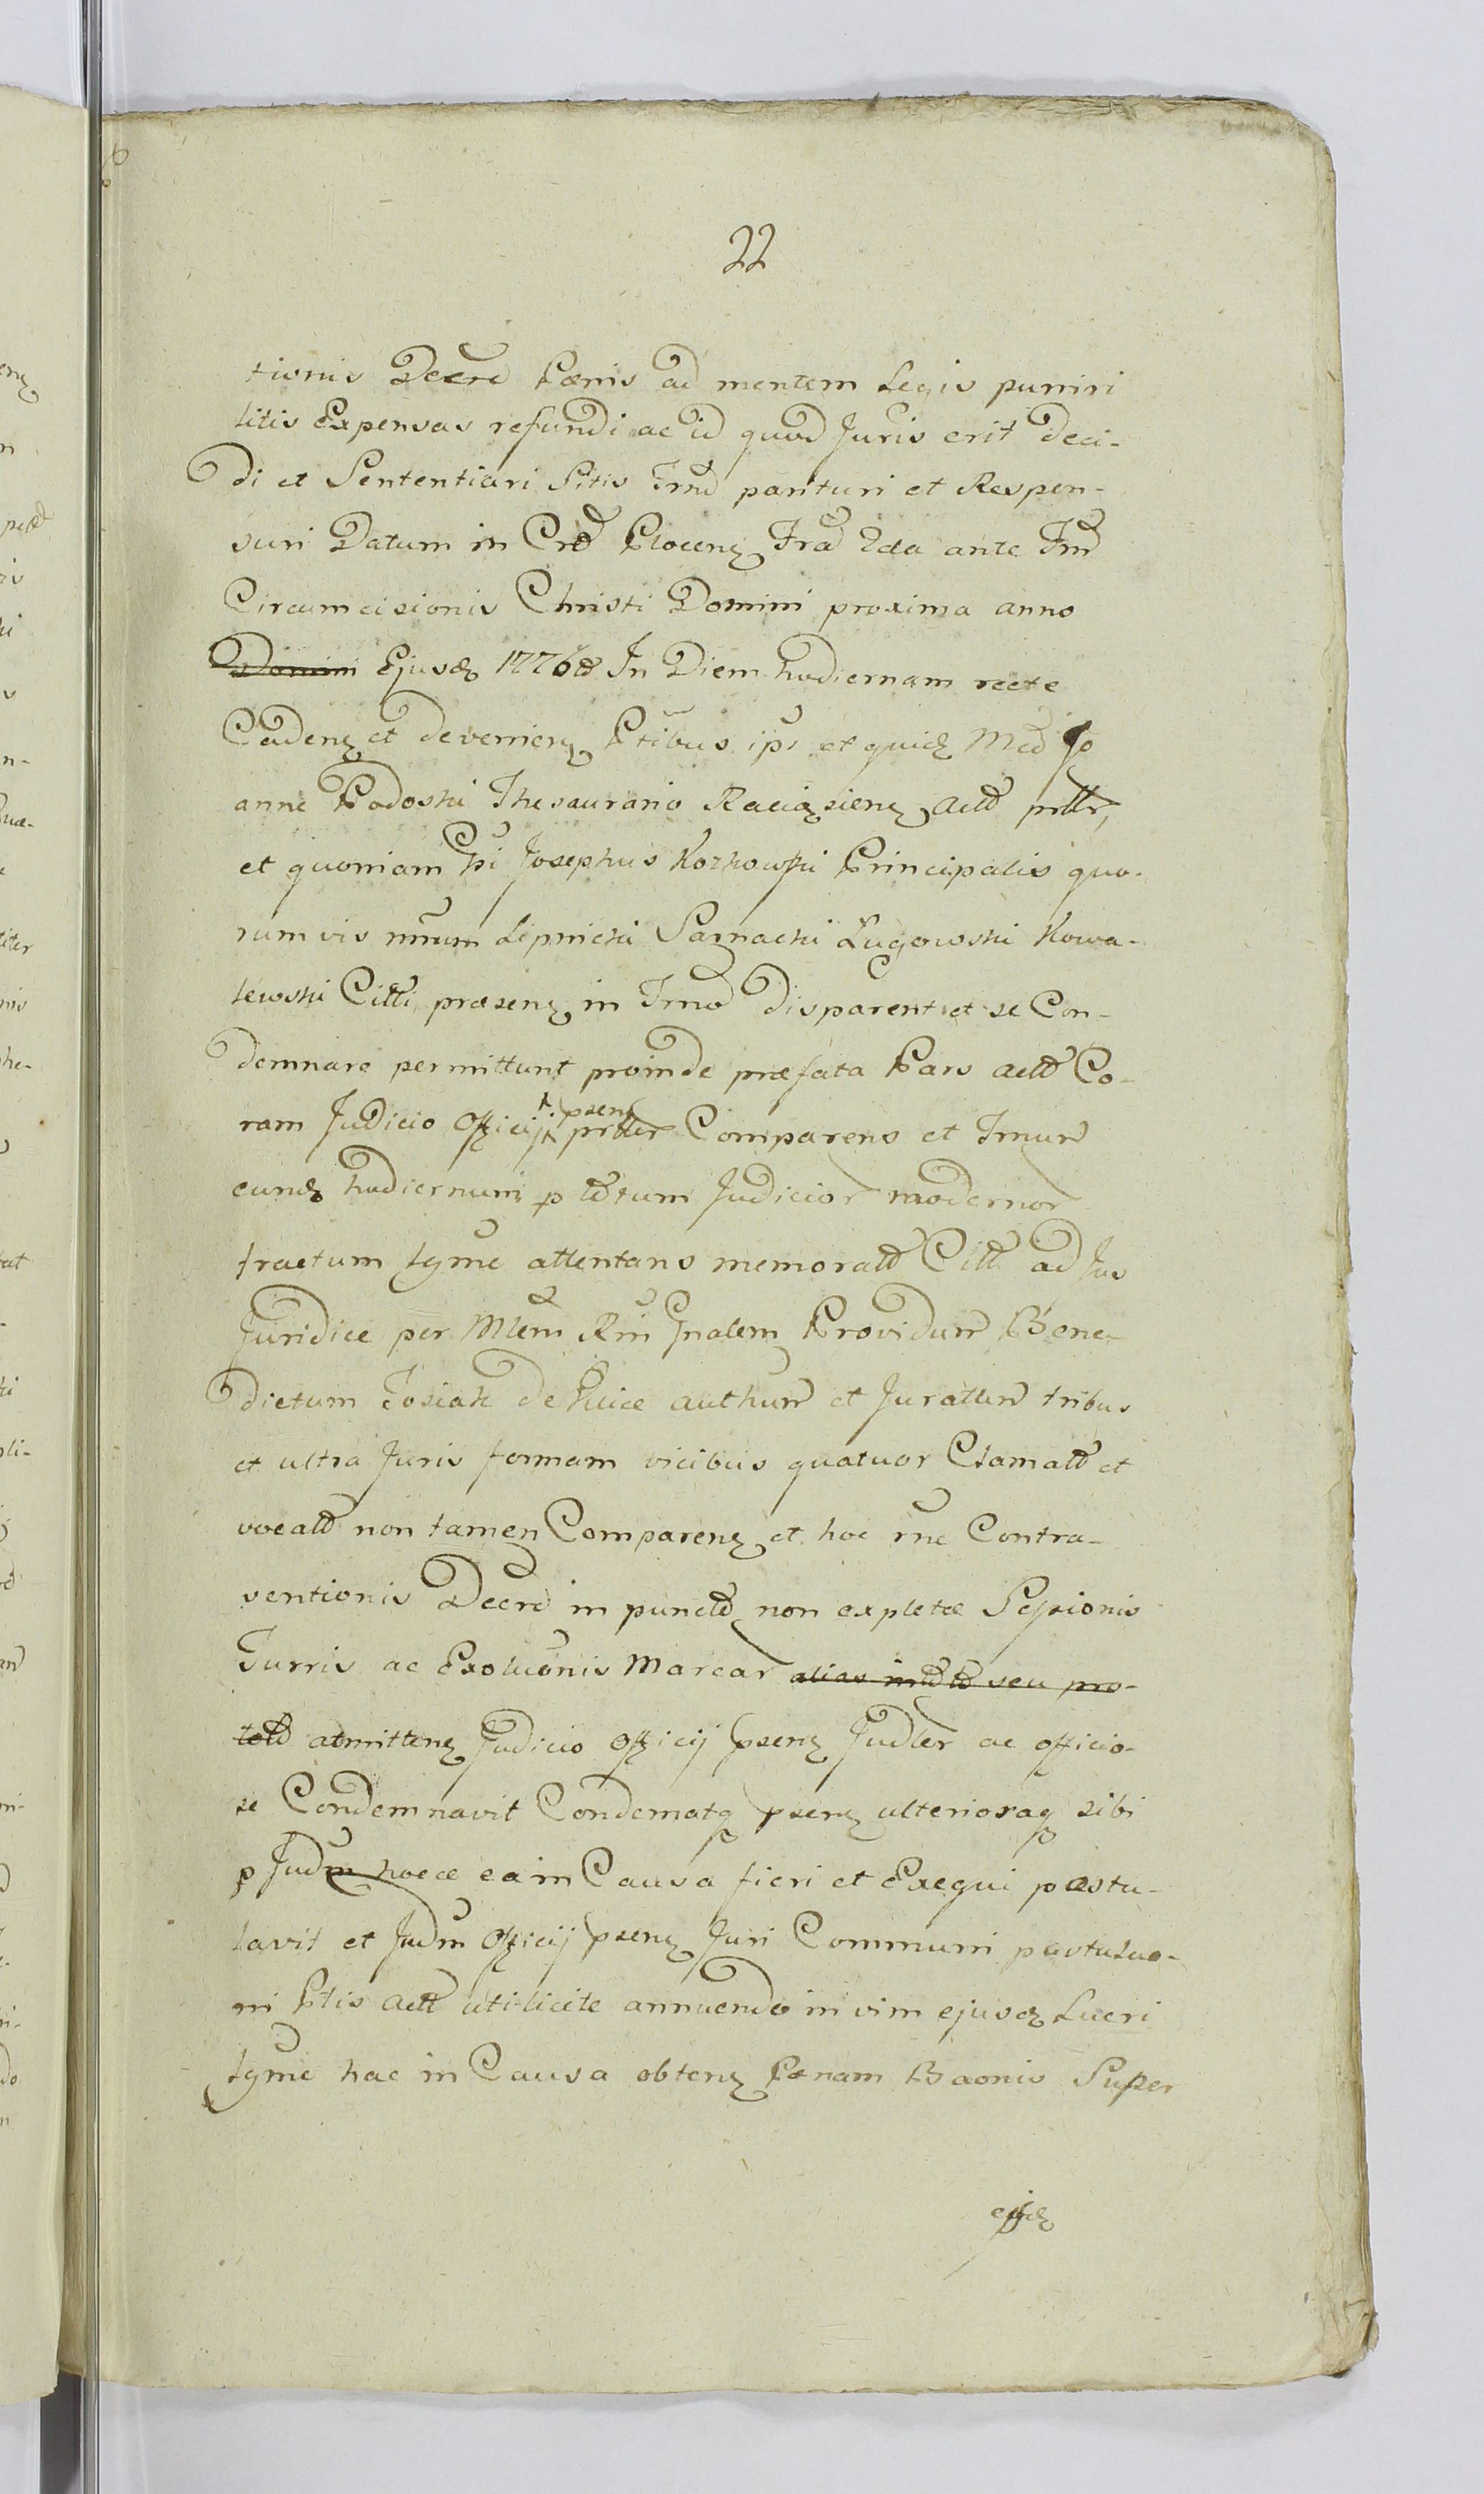 22
tionis Decre Pœnis ad mentem Legis puniri
litis Expensas refundi ac id quod Juris erit deci-
di et Sententiari Sitis Trnd parituri et Respon-
suri Datum in Crd Plocen Fra 2da ante Fm
Circumcisionis Christi Domini proxima anno
Domini Ejusd 1776 In Diem hodiernam recte
Caden et devenien Ptibus ips et quid Mcd Jo
anne Podoski Thesaurario Raciązien actt prltr,
et quoniam hi Josephus Kozkowski Principalis quo-
rum vis mnum Lipnicki Sarnacki Ługowski Kowa-
lewski Citti præsen in Trno disparent et se Con-
demnare permittunt proinde præfata Pars actt Co-
ram Judicio Officij psen prltr Comparens et Trnum
eund hodiernum p tum Judicior modernor
tractum lgme attentans memoratt Citt ad Jus
Juridice per Mlem Rm Gnalem Providum Bene-
dictum Tosiak de authum et Juratum tribus
et ultra Juris formam vicibus quatuor Clamatt et
vocatt non tamen Comparen et hoc rne Contra-
ventionis Decre in punctt non expletæ Sessionis
Turris ac Exoluonis Marcar alias seu pro-
admitten Judicio Officij psen Judler ac officio-
se Condemnavit Condematq psen ulterioraq sibi
p Judm hocce ea in Causa fieri et Exequi postu-
lavit et Judm Officij psen Juri Communi postuluo-
ni Ptis actt uti licite annuendo in vim ejusd Lucri
lgme hac in Causa obten Pœnam Baonis Super
ejusd